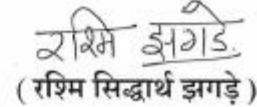 रश्मि झगडे.
( रश्मि सिद्धार्थ झगड़े )